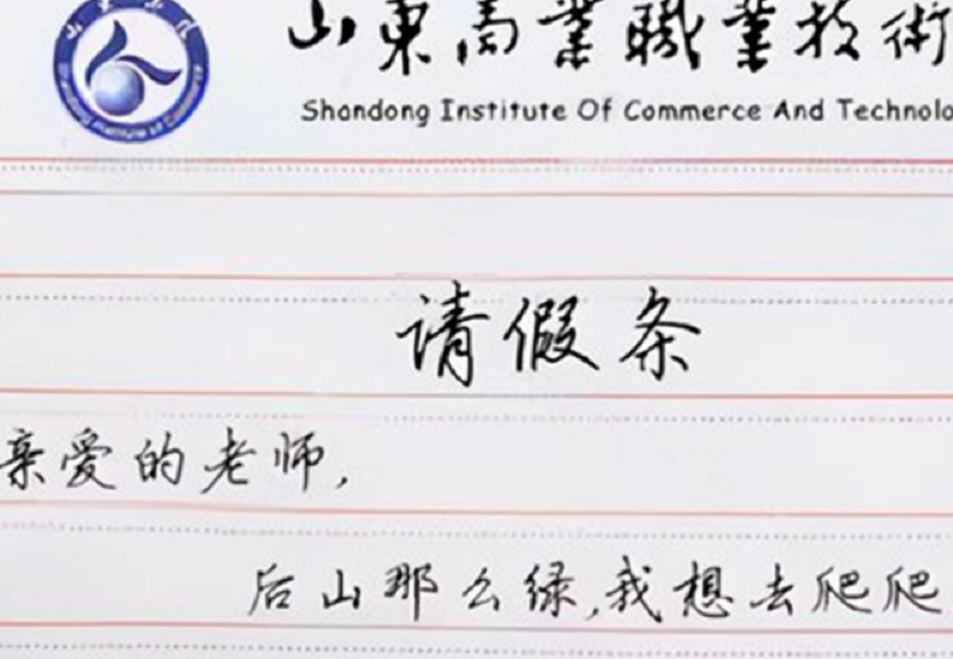 山東商業職業技術
Shandong Institute Of Commerce And Technolo
请假条
亲爱的老师,
后山那么绿,我想去爬爬